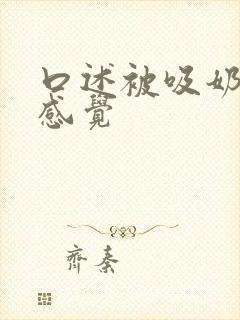 口述被吸奶
感觉
齊秦